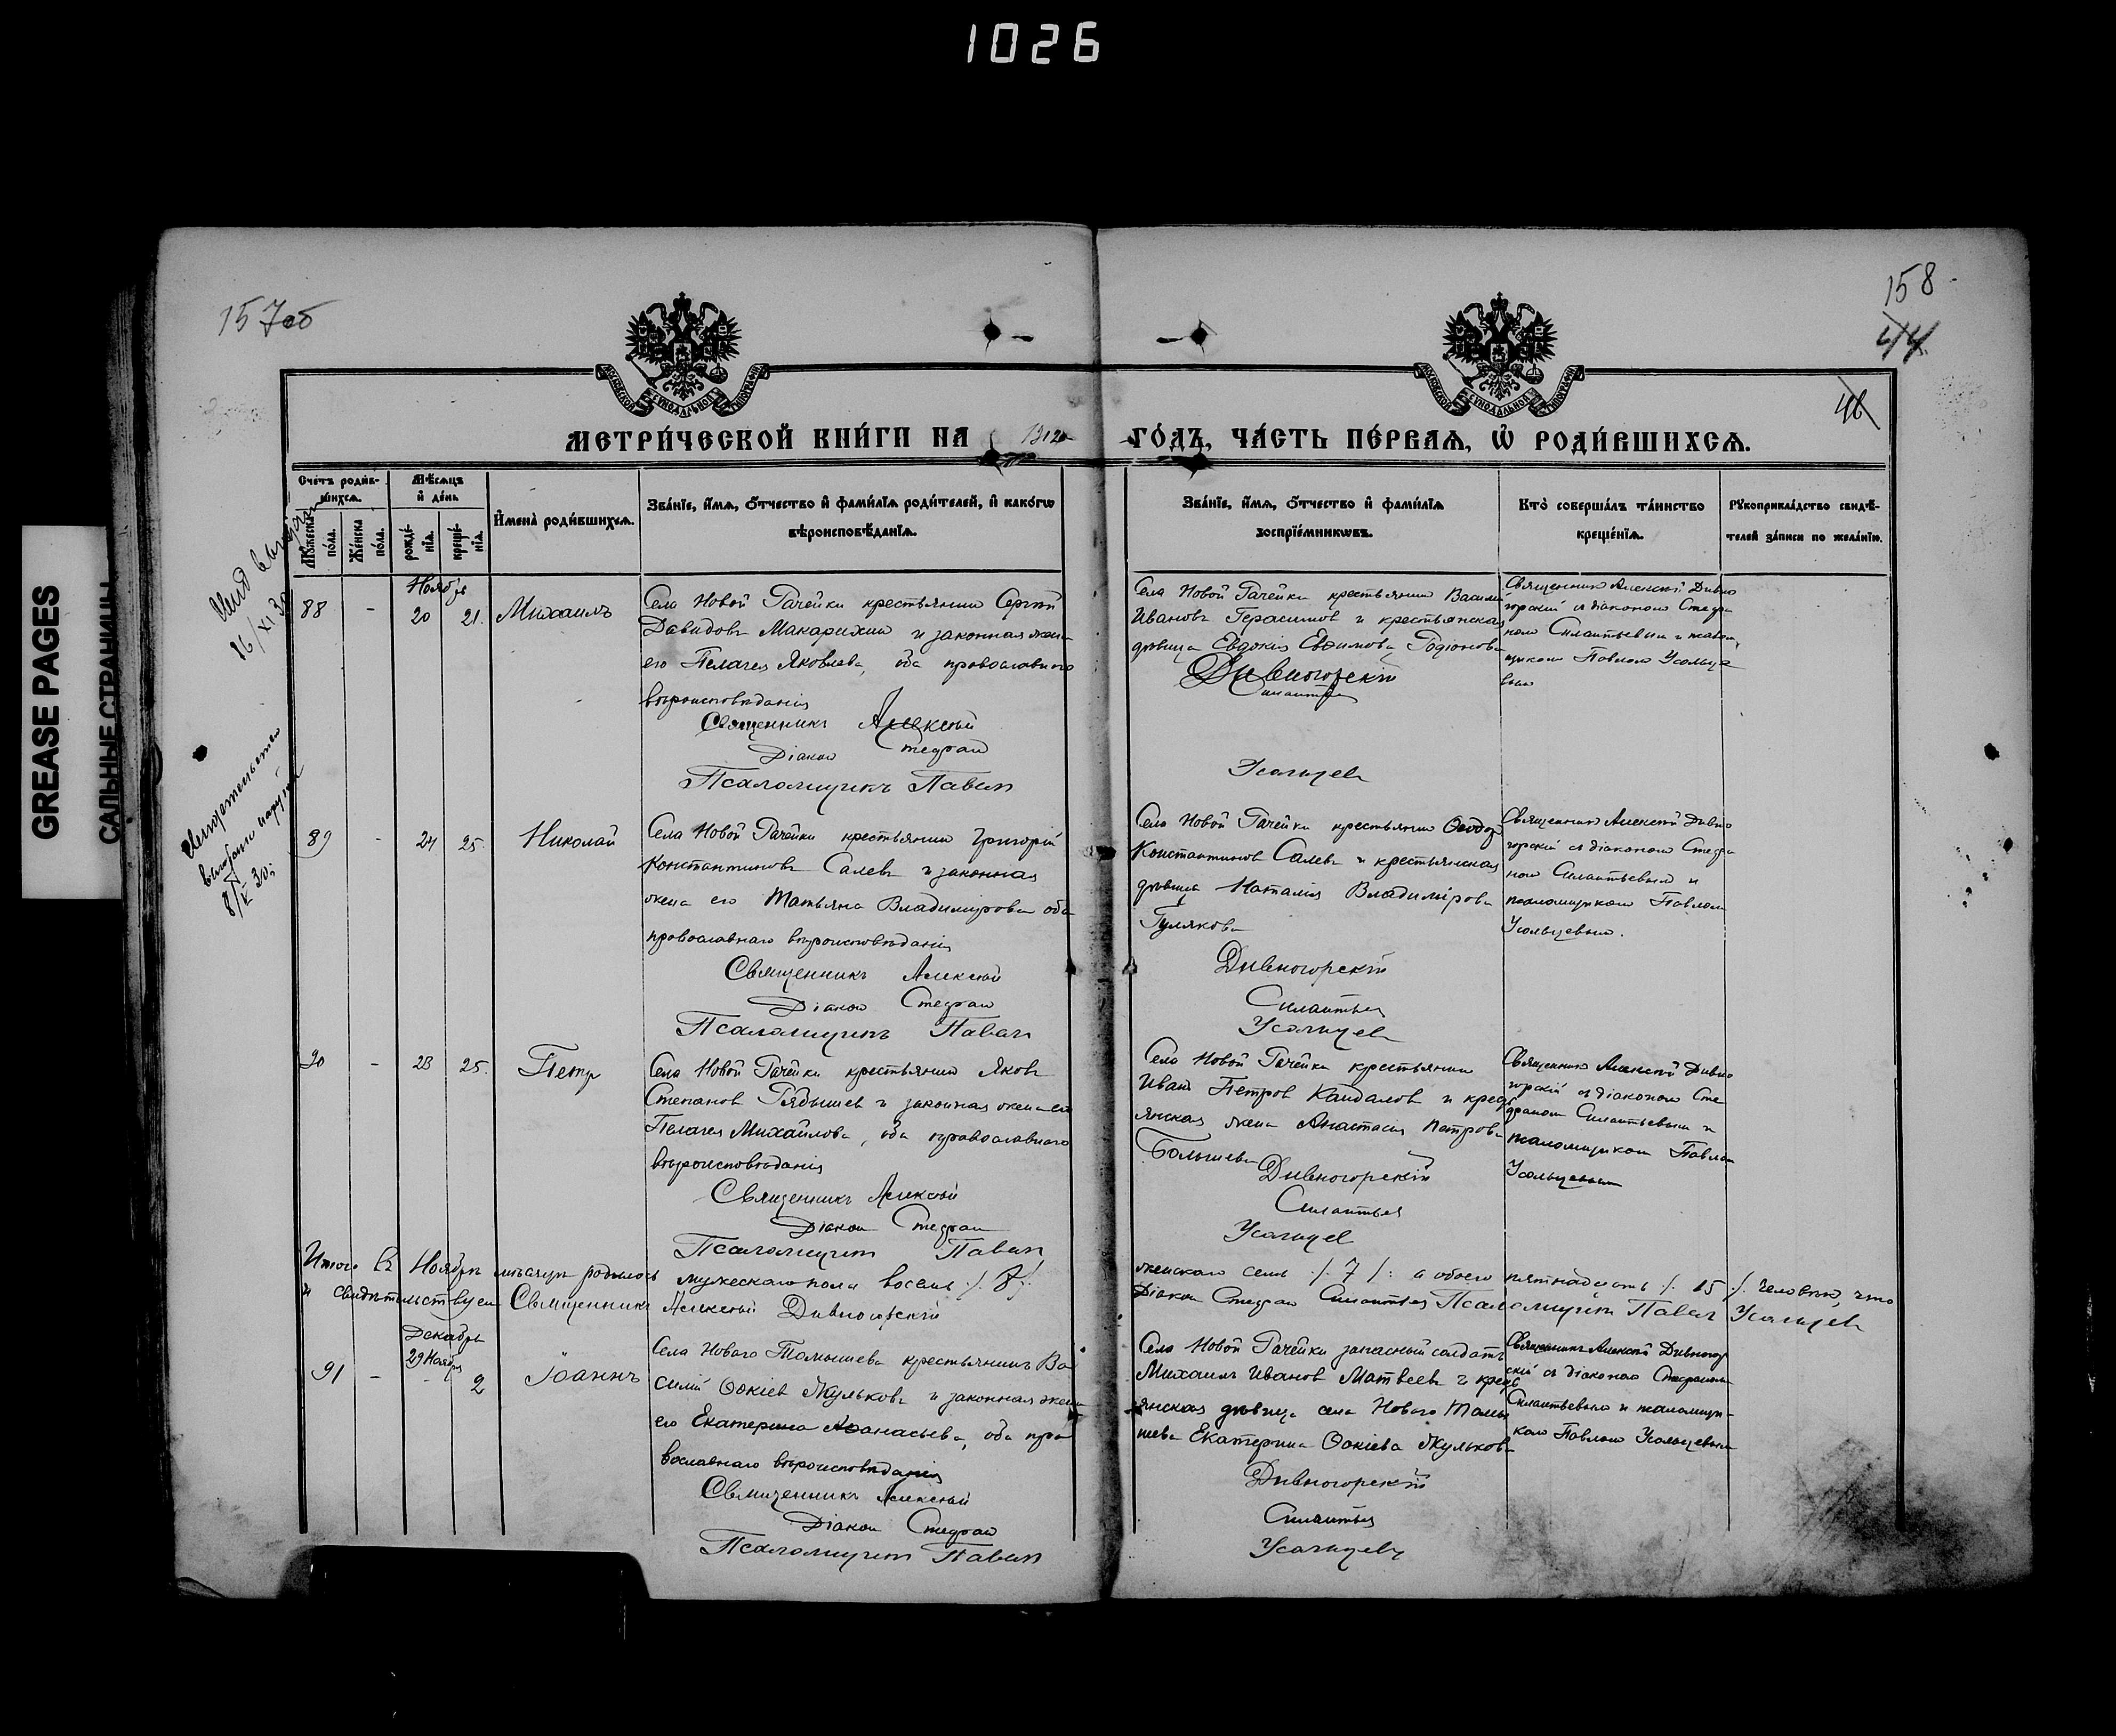 1026
GREASE PAGES
САЛЬНЫЕ СТРАНИЦЫ
157об
158
44
46
МЕТРИ́ЧЕСКОЙ КНИ́ГИ НА 1912 ГО́ДЪ, ЧА́СТЬ ПЕ́РВАЯ, Ѡ҆ РОДИ́ВШИХСЯ.
Сче́тъ роди́в-
шихся.
Мѣ́сяцъ
и҆ де́нь
Мꙋ́жеска
по́ла.
Же́нска
по́ла.
рожде́-
нїя.
креще́-
нїя.
И҆мена̀ роди́вшихся.
Зва́нїе, и҆́мя, о҆́тчество и҆ фами́лїя роди́телей, и҆ како́гѡ
вѣроисповѣ́данїя.
Зва́нїе, и҆́мя, о҆́тчество и҆ фами́лїя
воспрїе́мникѡвъ.
Кто̀ соверша́лъ та́инство
креще́нїя.
Рꙋкоприкла́дство свидѣ́-
телей за́писи по жела́нїю.
16/XI 30
Свидетельство
8/V 30
Ноябрь
88 - 20 21. Михаилъ
Села Новой Рачейки крестьянин Сергій
Давидовъ Макарихин и законная жена
его Пелагея Яковлева, оба православнаго
вѣроисповѣданія
Священникъ Алексѣй
Діакон Стефан
Псаломщикъ Павел
Села Новой Рачейки крестьянин Василій
Ивановъ Герасимов и крестьянская
дѣвица Евдокія Евѳимова Родіонова
Дивногорскій
Силантьев
Усольцев
Священник Алексѣй Дивно
горскій съ діаконом Стефа
ном Силантьевым и псалом
щиком Павлом Усольце
вым
89 - 24 25. Николай
Села Новой Рачейки крестьянин Григорій
Константинов Салев и законная
жена его Татьяна Владимирова оба
православнаго вѣроисповѣданія
Священникъ Алексѣй
Діакон Стефан
Псаломщикъ Павел
Села Новой Рачейки крестьянин Ѳеодор
Константинов Салев и крестьянская
дѣвица Наталія Владимірова
Гулякова
Дивногорскій
Силантьев
Усольцев
Священник Алексѣй Дивно
горскій съ діаконом Стефа
ном Силантьевым и
псаломщиком Павлом
Усольцевым.
90 - 23 25. Петр
Села Новой Рачейки крестьянин Яков
Степанов Рябышев и законная жена его
Пелагея Михайлова, оба православнаго
вѣроисповѣданія
Священникъ Алексѣй
Діакон Стефан
Псаломщик Павел
Села Новой Рачейки крестьянин
Иван Петров Кандалов и кресть
янская жена Анастасія Петрова
Болышева
Дивногорскій
Силантьев
Усольцев
Священник Алексѣй Дивно
горскій съ діаконом Сте
фаном Силантьевым и
псаломщиком Павлом
Усольцевым
Итого въ Ноябрѣ мѣсяцѣ родилось мужескаго пола восемь /. 8 /. женскаго семь /. 7 /. а обоего пятнадцать /. 15 /. человѣк, что
и свидѣтельствуем Священникъ Алексѣй Дивногорскій Діакон Стефан Силантьев Псаломщик Павел Усольцев
Декабрь
29 Ноября
91 - - 2 Іоаннъ
Села Новаго Томышева крестьянинъ Ва
силій Ѳокіев Жульковъ и законная жена
его Екатерина Аѳанасьева, оба пра
вославнаго вѣроисповѣданія
Священникъ Алексѣй
Діакон Стефан
Псаломщик Павел
Села Новой Рачейки запасный солдатъ
Михаилъ Иванов Матвеев и кресть
янская дѣвица села Новаго Томы
шева Екатерина Ѳокіева Жулькова
Дивногорскій
Силантьев
Усольцев
Священникъ Алексѣй Дивногор
скій съ діаконом Стефаном
Силантьевым и псаломщи-
ком Павлом Усольцевым